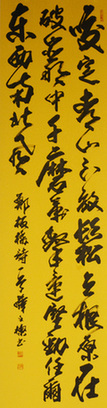 咬定青山不放鬆立根原在
破岩中千磨萬擊還堅勁任爾
东西南北风
鄭板橋詩一首